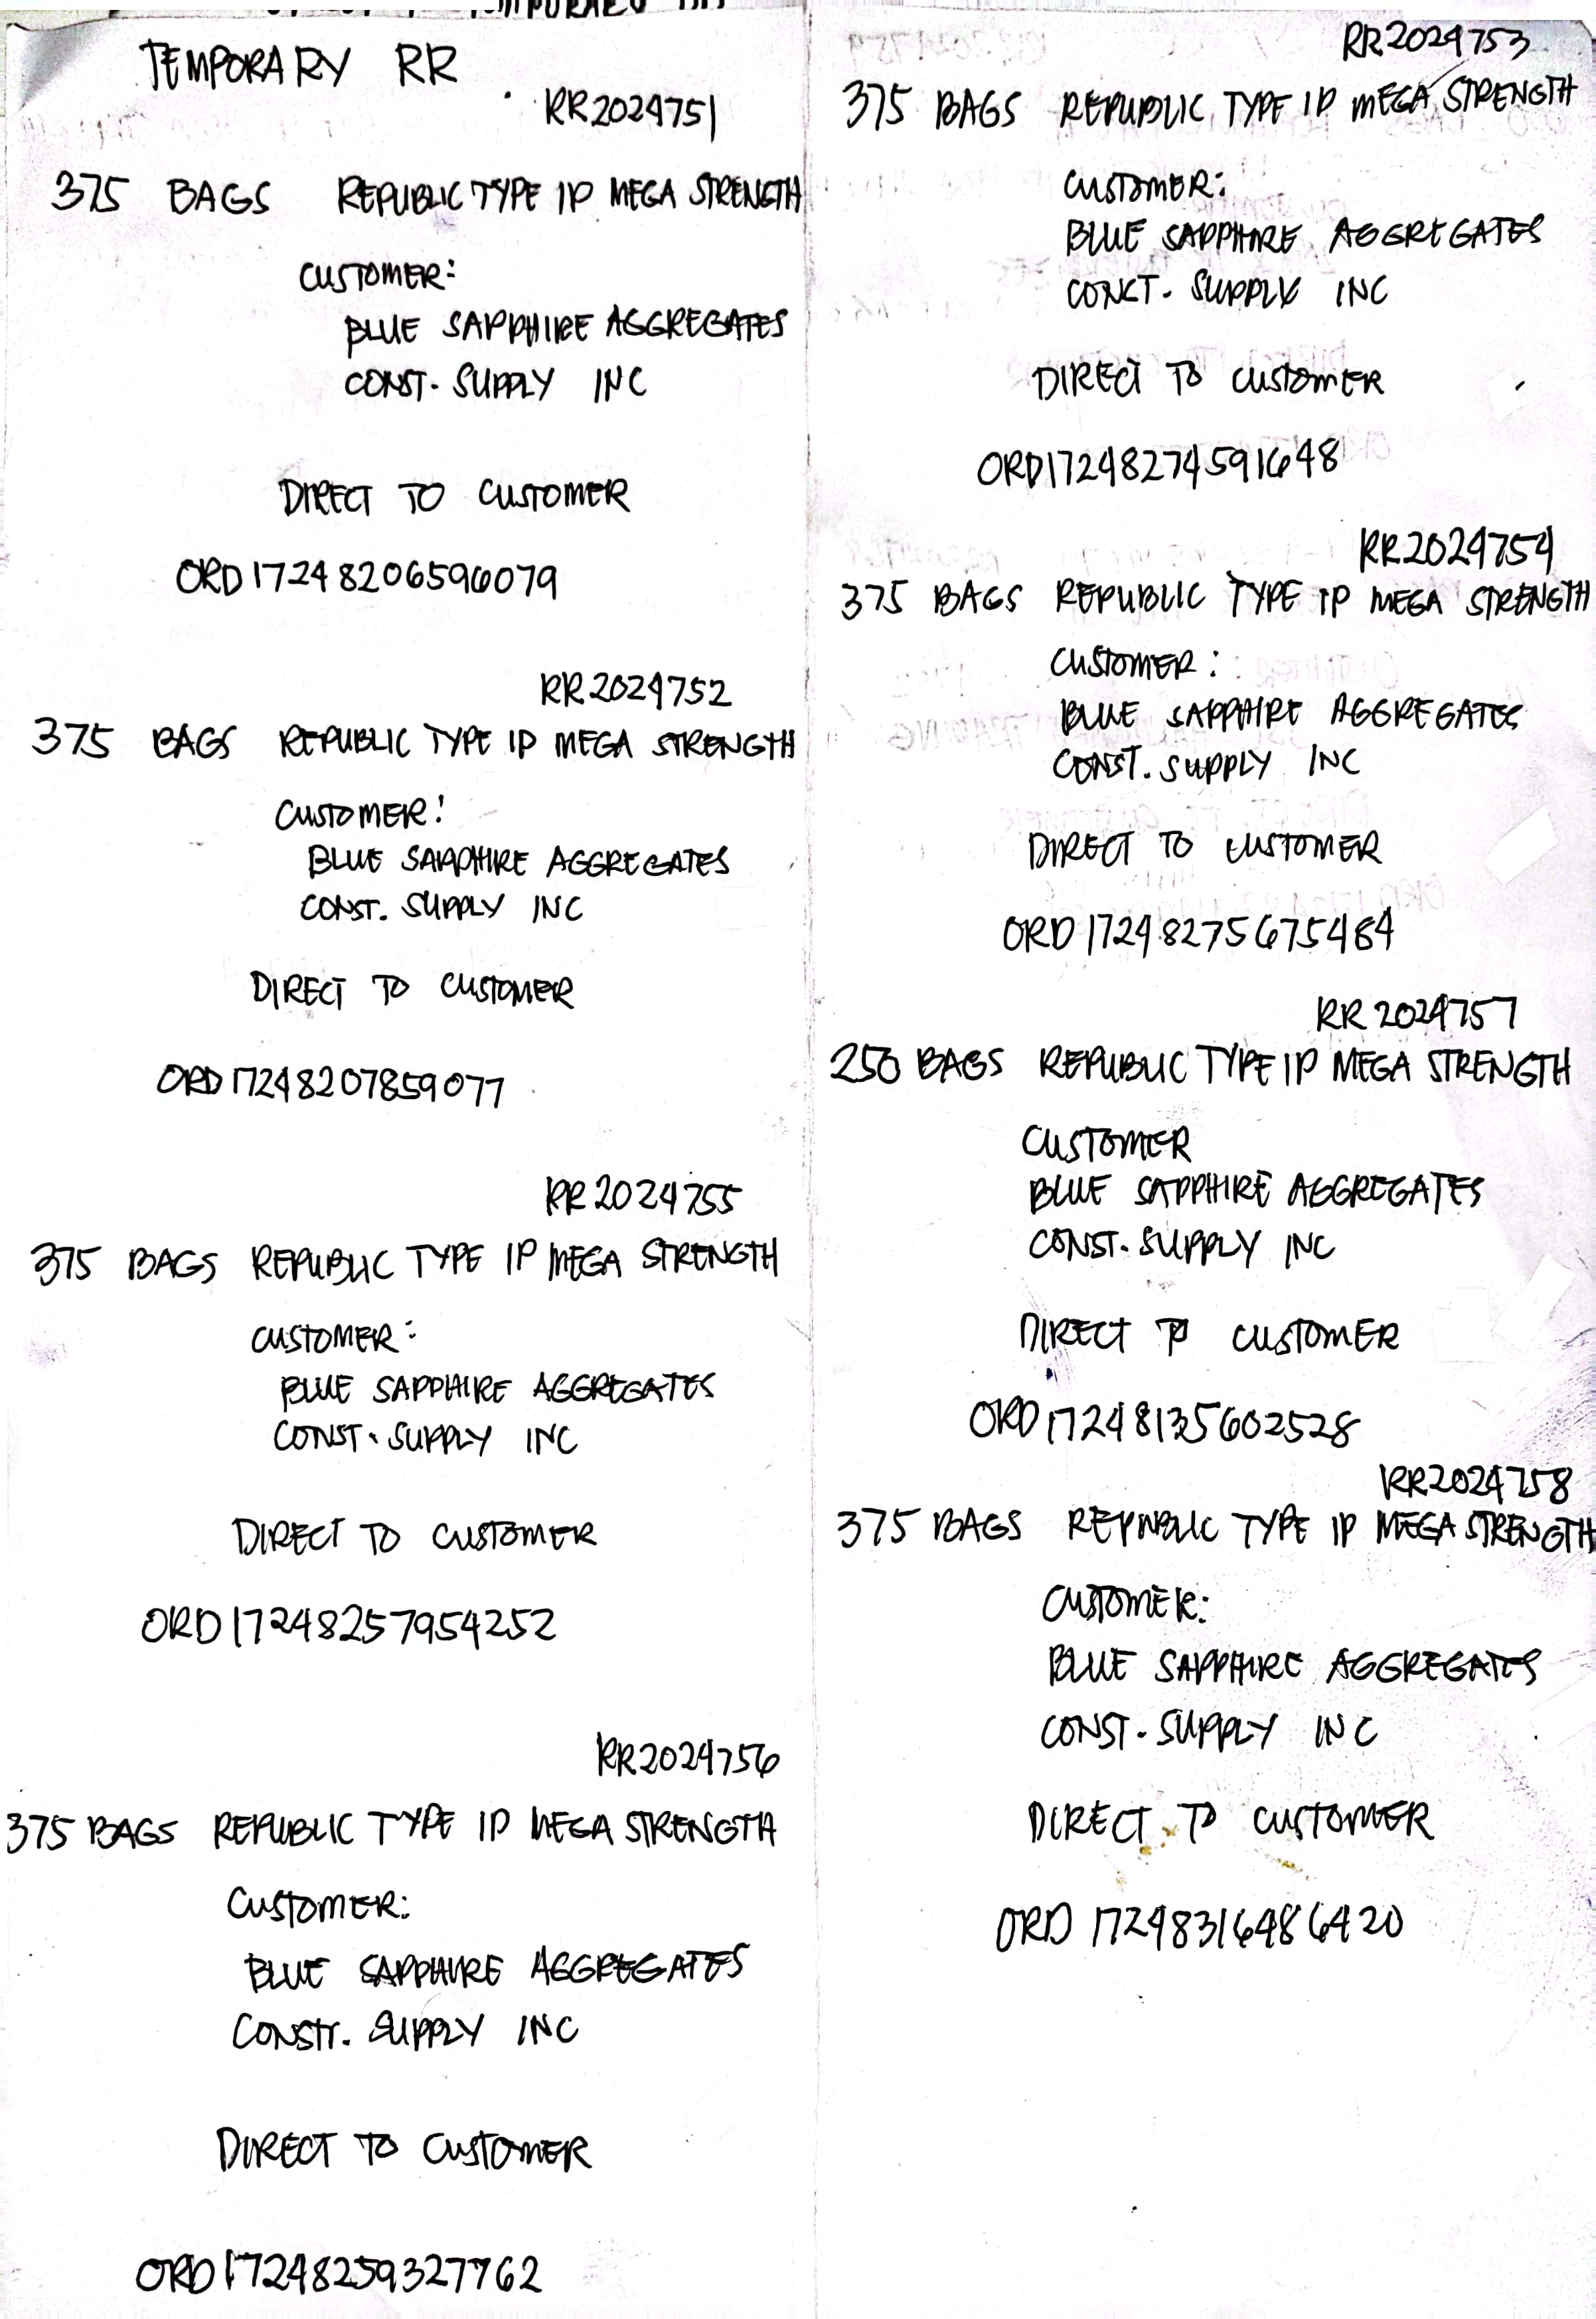 TEMPORARY RR
RR2024751
375 BAGS REPUBLIC TYPE 1P MEGA STRENGTH
CUSTOMER:
BLUE SAPPHIRE AGGREGATES
CONST. SUPPLY INC
DIRECT TO CUSTOMER
ORD17248206596079
RR2024752
375 BAGS REPUBLIC TYPE 1P MEGA STRENGTH
CUSTOMER:
BLUE SAPPHIRE AGGREGATES
CONST. SUPPLY INC
DIRECT TO CUSTOMER
ORD17248207859077
RR2024755
375 BAGS REPUBLIC TYPE 1P MEGA STRENGTH
CUSTOMER:
BLUE SAPPHIRE AGGREGATES
CONST. SUPPLY INC
DIRECT TO CUSTOMER
ORD17248257954252
RR2024756
375 BAGS REPUBLIC TYPE 1P MEGA STRENGTH
CUSTOMER:
BLUE SAPPHIRE AGGREGATES
CONSTR. SUPPLY INC
DIRECT TO CUSTOMER
ORD17248259327762
RR2024753
375 BAGS REPUBLIC TYPE 1P MEGA STRENGTH
CUSTOMER:
BLUE SAPPHIRE AGGREGATES
CONCT. SUPPLY INC
DIRECT TO CUSTOMER
ORD17248274591648
RR2024754
375 BAGS REPUBLIC TYPE 1P MEGA STRENGTH
CUSTOMER:
BLUE SAPPHIRE AGGREGATES
CONST. SUPPLY INC
DIRECT TO CUSTOMER
ORD17248275675484
RR2024757
250 BAGS REPUBLIC TYPE 1P MEGA STRENGTH
CUSTOMER
BLUE SAPPHIRE AGGREGATES
CONST. SUPPLY INC
DIRECT TO CUSTOMER
ORD17248135602528
RR2024758
375 BAGS REPUBLIC TYPE 1P MEGA STRENGTH
CUSTOMER:
BLUE SAPPHIRE AGGREGATES
CONST. SUPPLY INC
DIRECT TO CUSTOMER
ORD 17248316486420